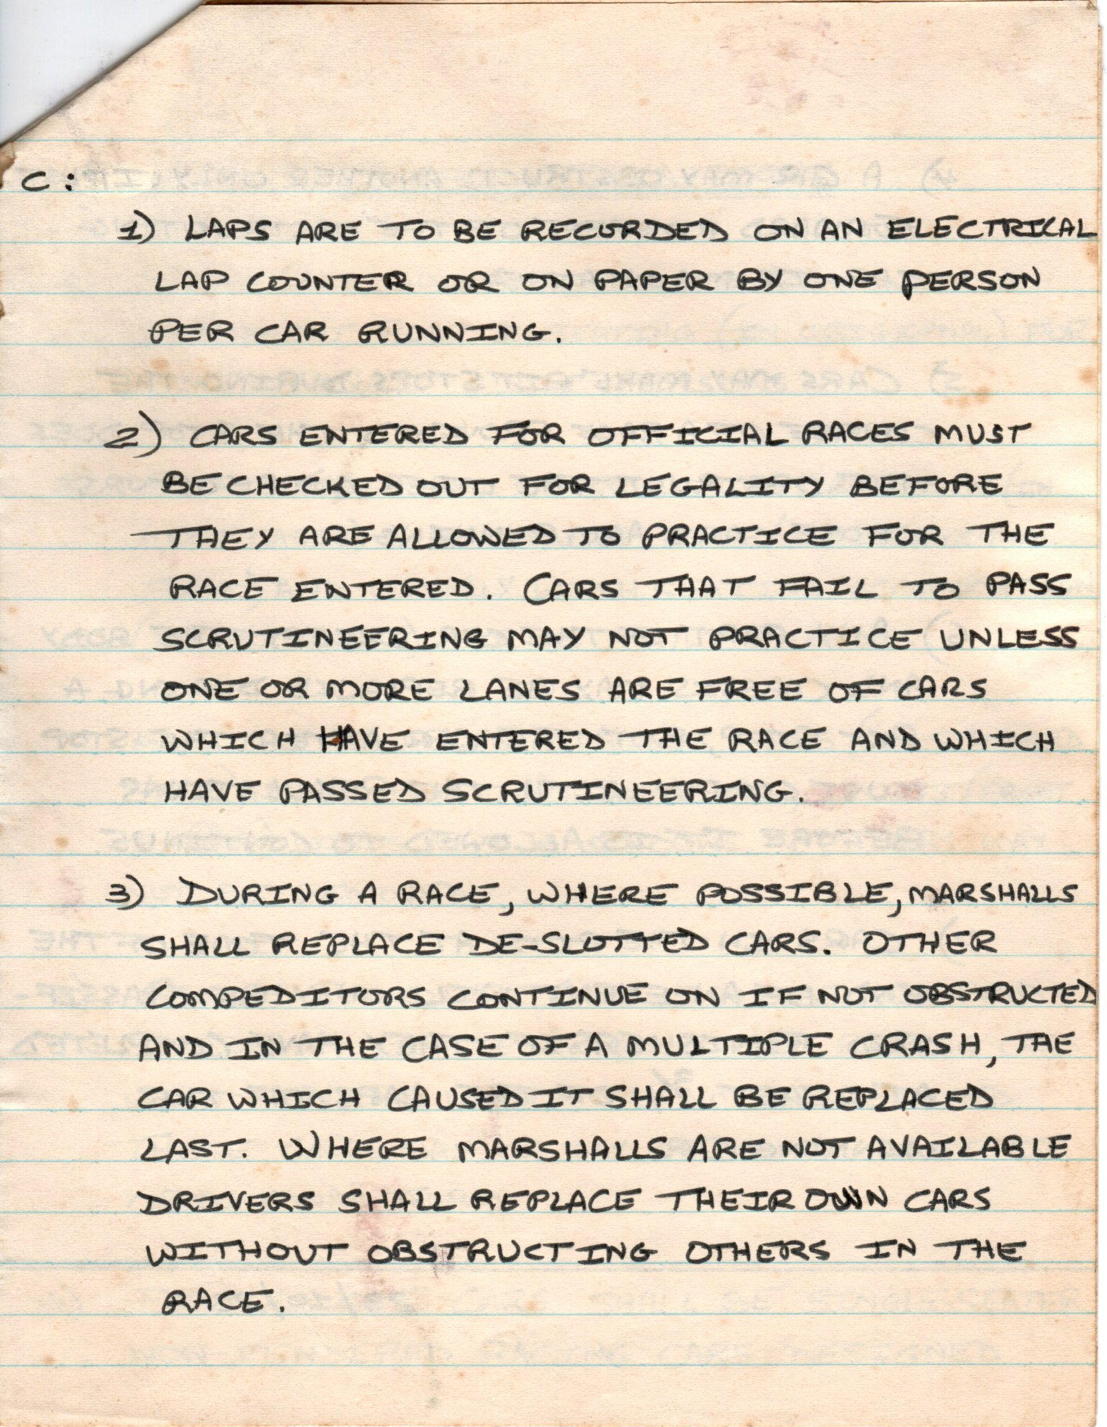 C:
1) LAPS ARE TO BE RECORDED ON AN ELECTRICAL
LAP COUNTER OR ON PAPER BY ONE PERSON
PER CAR RUNNING.
2) CARS ENTERED FOR OFFICIAL RACES MUST
BE CHECKED OUT FOR LEGALITY BEFORE
THEY ARE ALLOWED TO PRACTICE FOR THE
RACE ENTERED. CARS THAT FAIL TO PASS
SCRUTINEERING MAY NOT PRACTICE UNLESS
ONE OR MORE LANES ARE FREE OF CARS
WHICH HAVE ENTERED THE RACE AND WHICH
HAVE PASSED SCRUTINEERING.
3) DURING A RACE, WHERE POSSIBLE, MARSHALLS
SHALL REPLACE DE-SLOTTED CARS. OTHER
COMPEDITORS CONTINUE ON IF NOT OBSTRUCTED
AND IN THE CASE OF A MULTIPLE CRASH, THE
CAR WHICH CAUSED IT SHALL BE REPLACED
LAST. WHERE MARSHALLS ARE NOT AVAILABLE
DRIVERS SHALL REPLACE THEIR OWN CARS
WITHOUT OBSTRUCTING OTHERS IN THE
RACE.